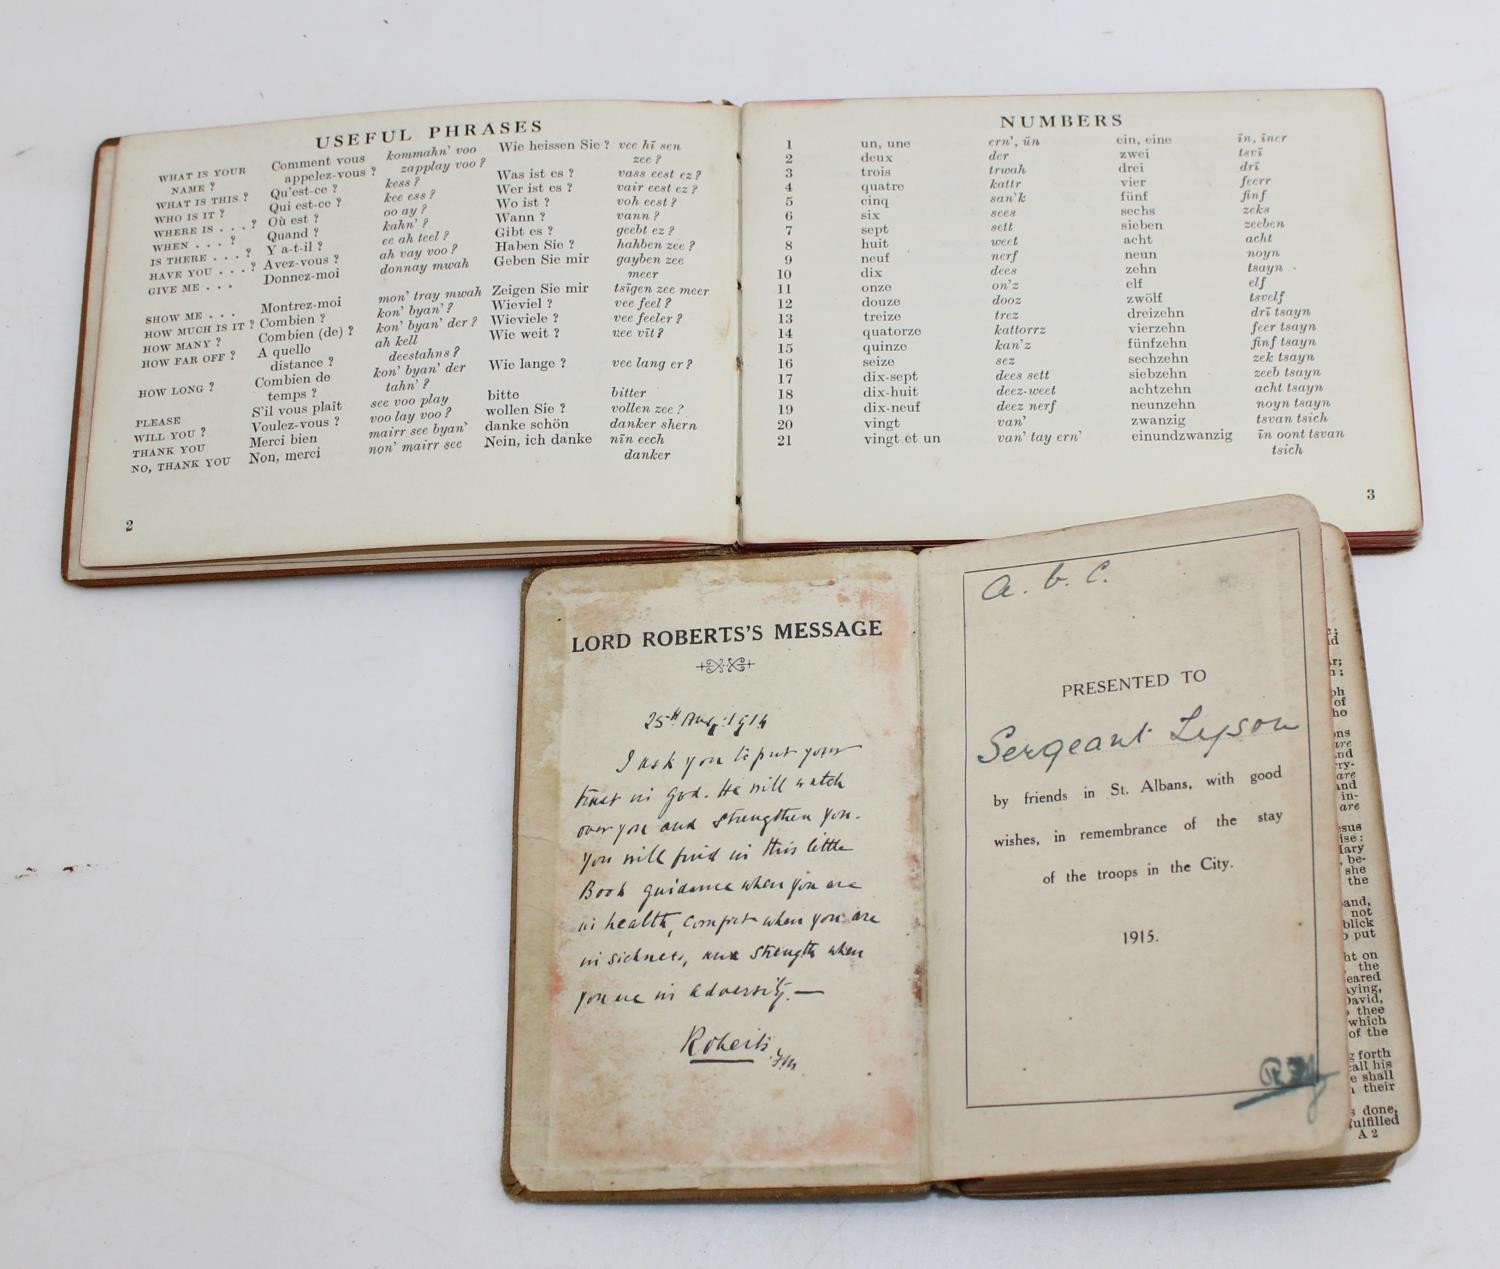 USEFUL PHRASES
WHAT IS YOUR NAME ? Comment vous appelez-vous ? kommahn' voo zapplay voo ? Wie heissen Sie ? vee hī sen zee ?
WHAT IS THIS ? Qu'est-ce ? kess ? Was ist es ? vass eest ez ?
WHO IS IT ? Qui est-ce ? kee ess ? Wer ist es ? vair eest ez ?
WHERE IS . . . ? Où est ? oo ay ? Wo ist ? voh eest ?
WHEN . . . ? Quand ? kahn' ? Wann ? vann ?
IS THERE . . . ? Y a-t-il ? ee ah teel ? Gibt es ? geebt ez ?
HAVE YOU . . . ? Avez-vous ? ah vay voo ? Haben Sie ? hahben zee ?
GIVE ME . . . Donnez-moi donnay mwah Geben Sie mir gayben zee meer
SHOW ME . . . Montrez-moi mon' tray mwah Zeigen Sie mir tsīgen zee meer
HOW MUCH IS IT ? Combien ? kon' byan' ? Wieviel ? vee feel ?
HOW MANY ? Combien (de) ? kon' byan' der ? Wieviele ? vee feeler ?
HOW FAR OFF ? A quelle distance ? ah kell deestahns ? Wie weit ? vee vīt ?
HOW LONG ? Combien de temps ? kon' byan' der tahn' ? Wie lange ? vee lang er ?
PLEASE S'il vous plait see voo play bitte bitter
WILL YOU ? Voulez-vous ? voo lay voo ? wollen Sie ? vollen zee ?
THANK YOU Merci bien mairr see byan' danke schön danker shern
NO, THANK YOU Non, merci non' mairr see Nein, ich danke nīn eech danker
2
NUMBERS
1 un, une ern', ün ein, eine īn, īner
2 deux der zwei tsvī
3 trois trwah drei drī
4 quatre kattr vier feerr
5 cinq san'k fünf finf
6 six sees sechs zeks
7 sept sett sieben zeeben
8 huit weet acht acht
9 neuf nerf neun noyn
10 dix dees zehn tsayn
11 onze on'z elf elf
12 douze dooz zwölf tsvelf
13 treize trez dreizehn drī tsayn
14 quatorze kattorrz vierzehn feer tsayn
15 quinze kan'z fünfzehn finf tsayn
16 seize sez sechzehn zek tsayn
17 dix-sept dees sett siebzehn zeeb tsayn
18 dix-huit deez-weet achtzehn acht tsayn
19 dix-neuf deez nerf neunzehn noyn tsayn
20 vingt van' zwanzig tsvan tsich
21 vingt et un van' tay ern' einundzwanzig īn oont tsvan tsich
3
LORD ROBERTS'S MESSAGE
25th Aug. 1914
I ask you to put your
trust in God. He will watch
over you and strengthen you.
You will find in this little
Book guidance when you are
in health, comfort when you are
in sickness, and strength when
you are in adversity.—
Roberts
F.M.
a. b. C.
PRESENTED TO
Sergeant Lyson
by friends in St. Albans, with good
wishes, in remembrance of the stay
of the troops in the City.
1915.
of
Jesus
Mary
she
the
not
put
on
the
David,
thee
which
of the
forth
call his
shall
their
done,
fulfilled
A 2